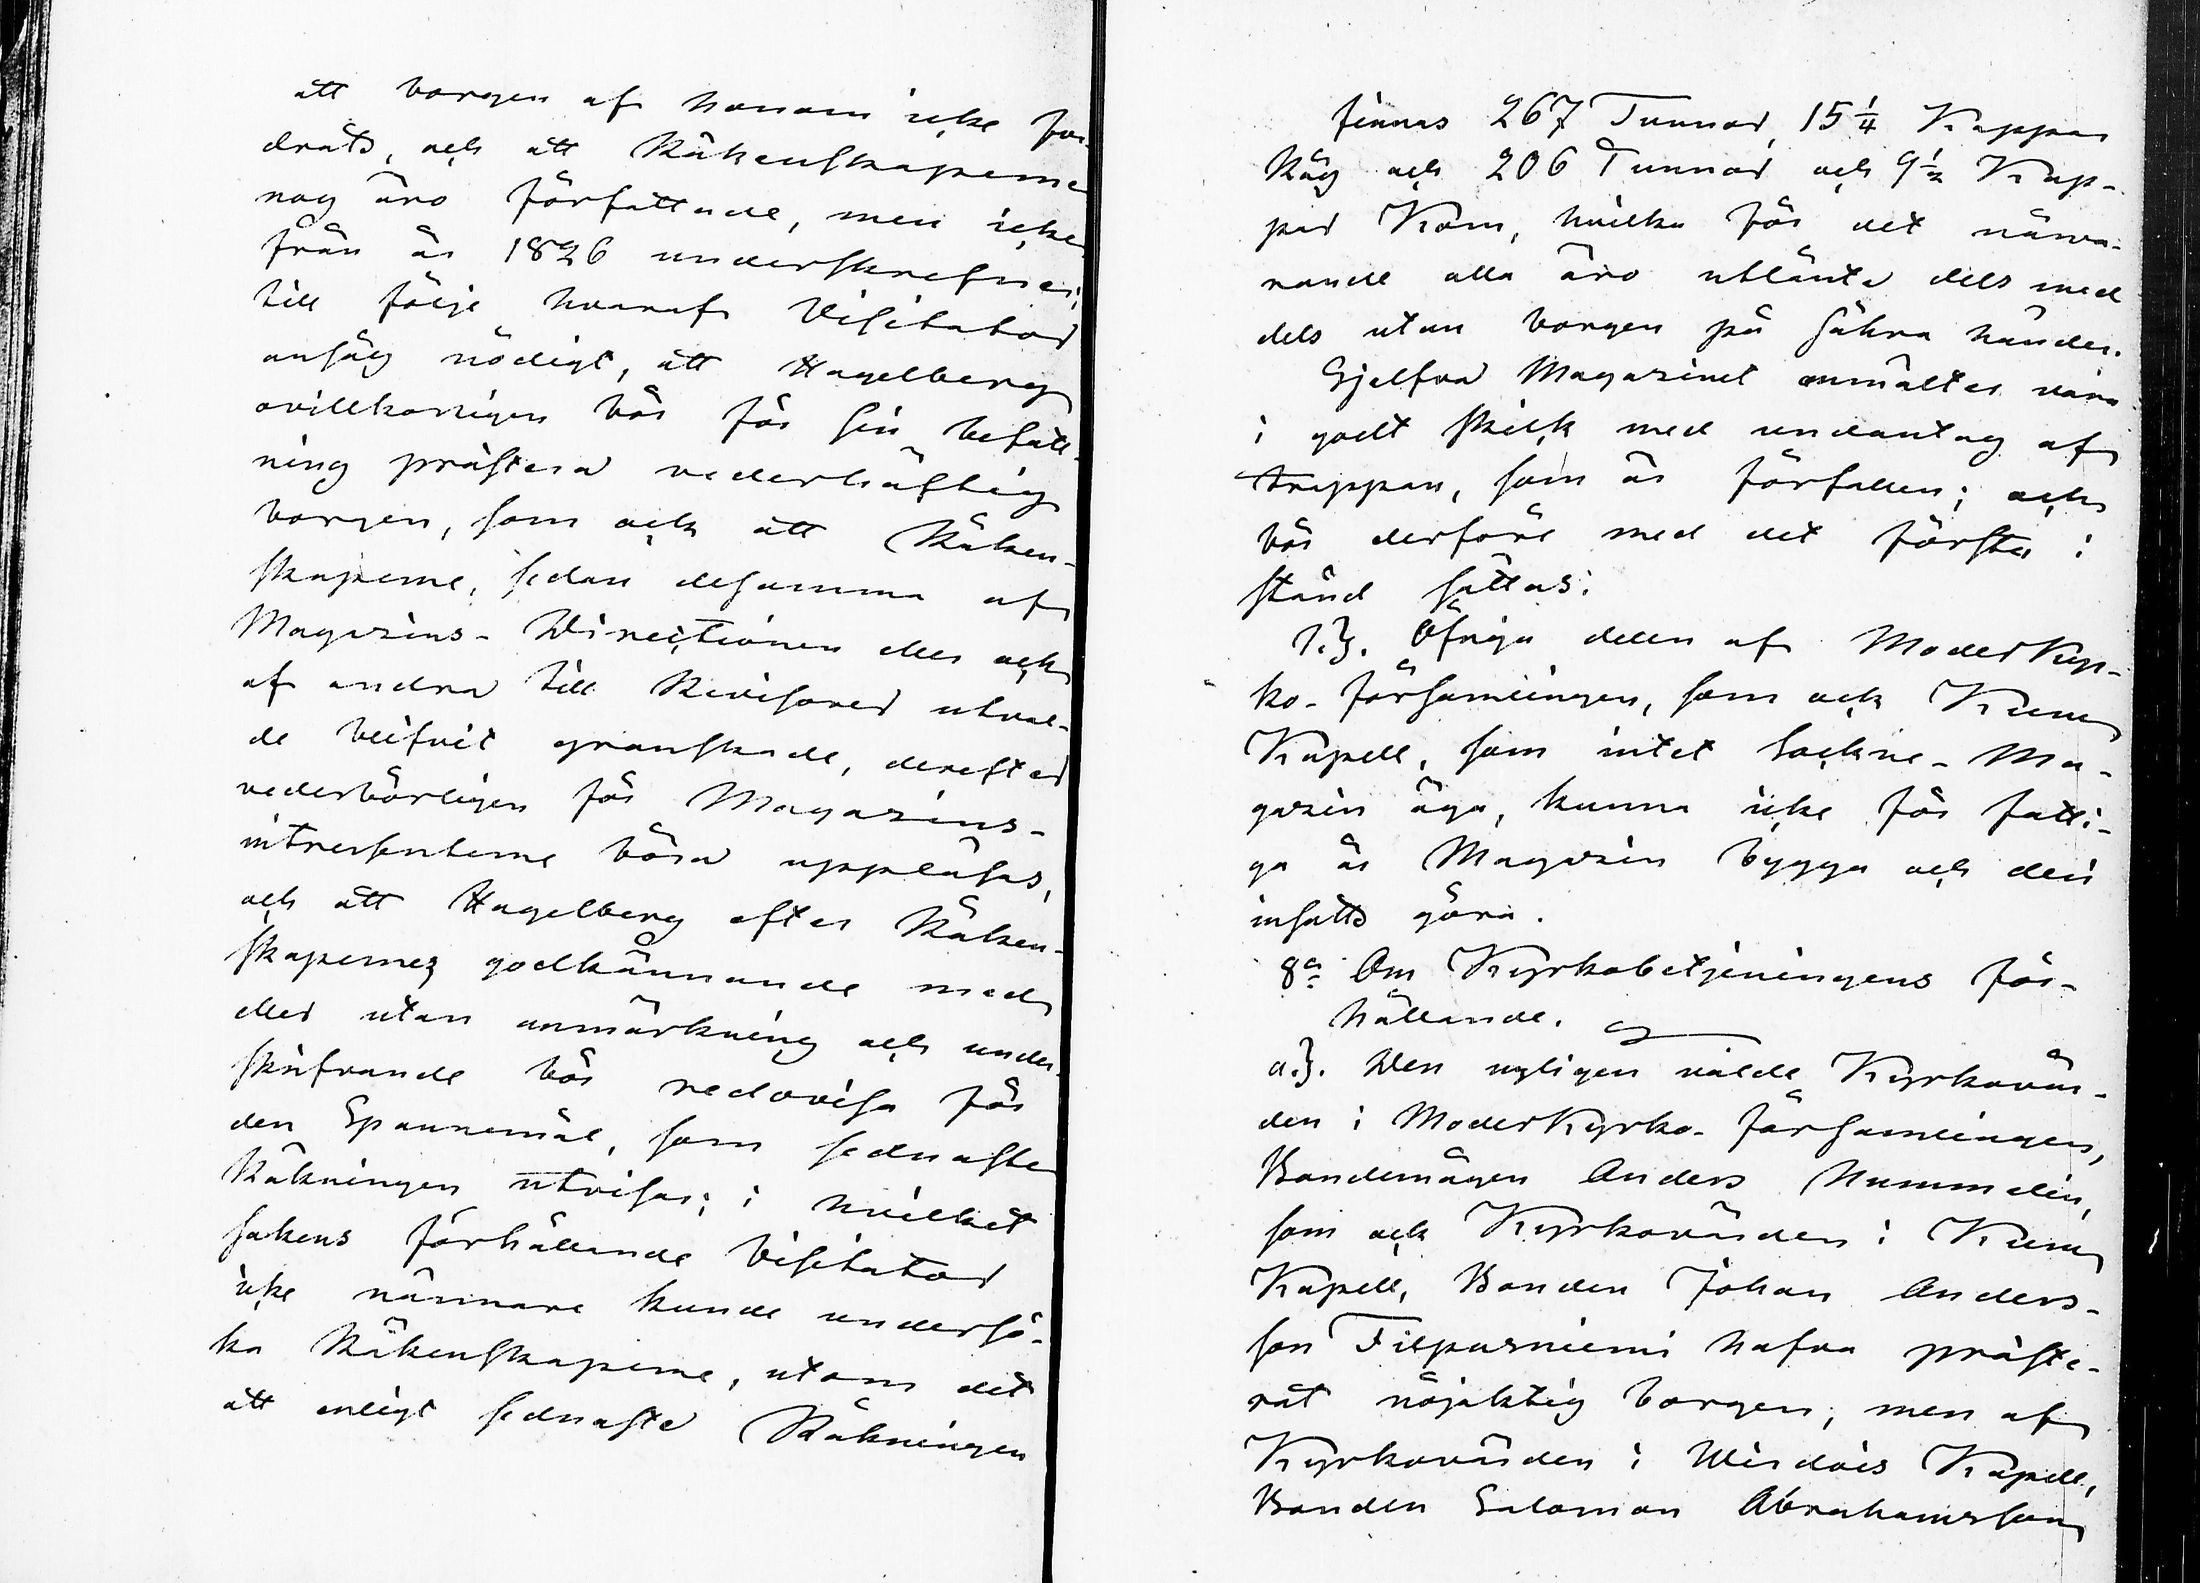 att borgen af honom icke for-
drats, och att Räkenskaperne
nog äro författade, men icke
från år 1826 underskrefne;
till följe hvaraf Visitator
ansåg nödigt, att Hagelberg
ovillkorligen bör för sin befatt-
ning prästera vederhäftig
borgen, som ock att Räken-
skaperne, sedan desamma af
Magazins-Directionen eller ock
af andra till Revisorer utval-
de blifvit granskade, derefter
vederbörligen för Magazins-
intressenterne böra uppläsas,
och att Hagelberg efter Räken-
skapernes godkännande med
eller utan anmärkning och under-
skrifvande bör redovisa för
den Spannemål, som sednaste
Räkningen utvisar; i hvilket
sakens förhållande Visitator
icke närmare kunde undersö-
ka Räkenskaperne, utom det
att enligt sednaste Räkningen
finnas 267 Tunnor, 15 1/4 Kappar
Råg och 206 Tunnor och 9 1/2 Kap-
par Korn, hvilka för det närva-
rande alla äro utlänta dels med
dels utan borgen på säkra händer.
Sjelfva Magazinet anmältes vara
i godt skick med undantag af
trappan, som är förfallen; och
bör derföre med det första i
stånd sättas.
1.}. Öfriga delen af Moderkyr-
ko-församlingen, som ock Kuru
Kapell, som intet Sockne-Ma-
gazin äga, kunna icke för fatti-
ga år Magazin bygga och deri
insatts göra.
8a Om Kyrkobetjeningens för-
hållande.
a.}. Den nyligen valde Kyrkovär-
den i Moderkyrko-församlingen,
Bondemågen Anders Nummelin,
som ock Kyrkovärden i Kuru
Kapell, Bonden Johan Anders-
son Filpusniemi hafva präste-
rat nöjaktig borgen; men af
Kyrkovärden i Wirdois Kapell,
Bonden Salomon Abrahamsson